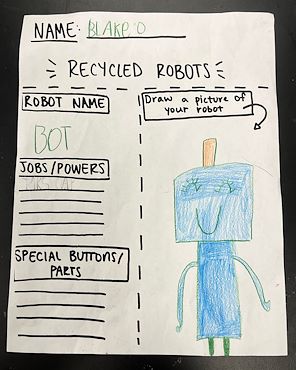 NAME: BLAKE O
RECYCLED ROBOTS
ROBOT NAME
Draw a picture of
your robot
BOT
JOBS/POWERS
SPECIAL BUTTONS/
PARTS